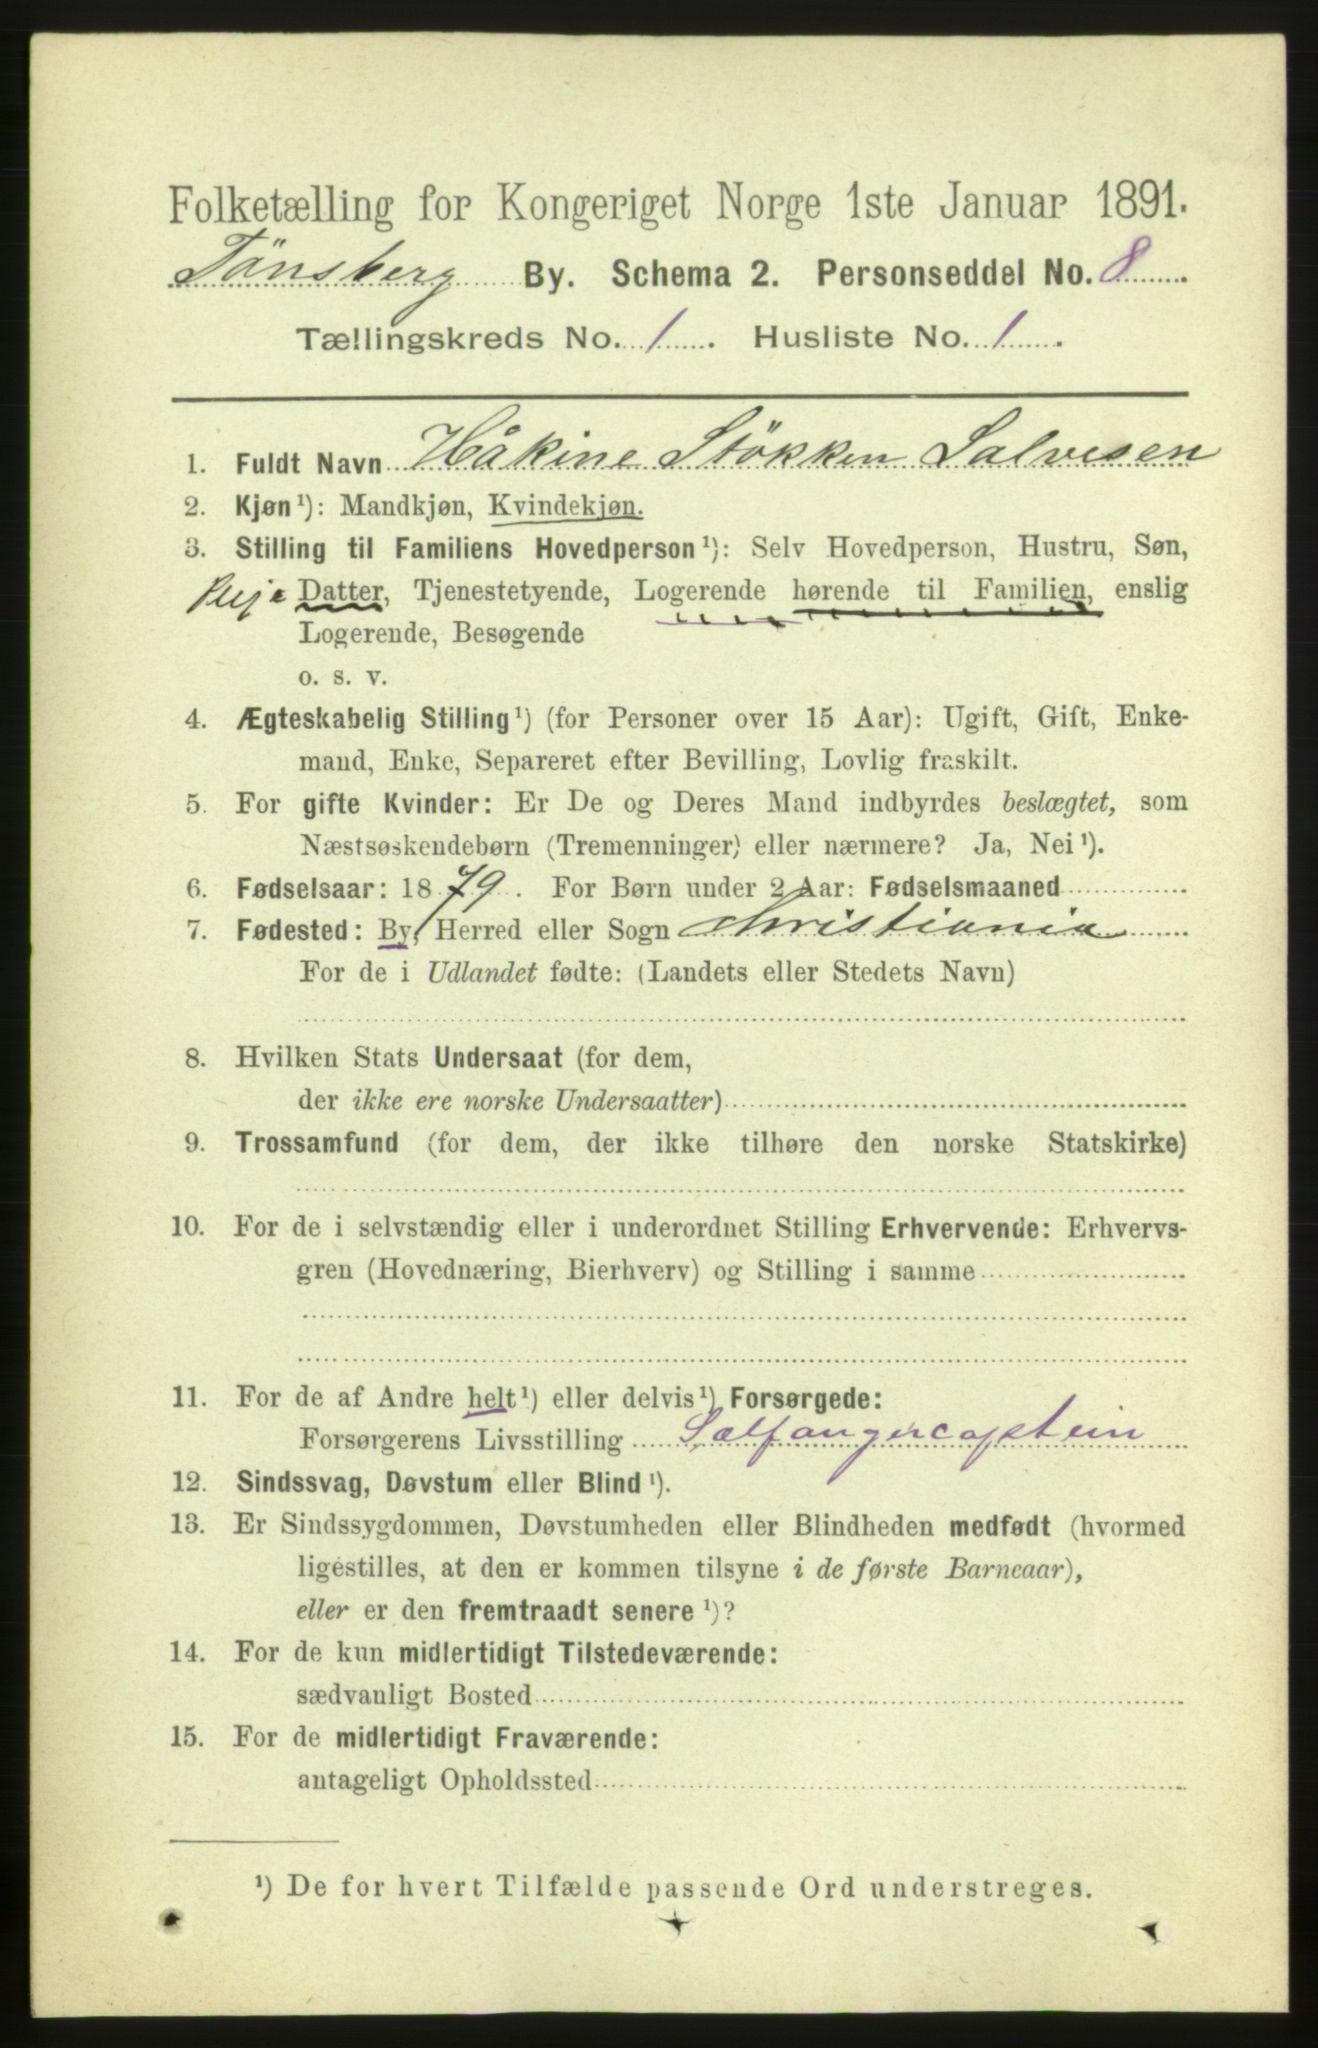 Folketælling for Kongeriget Norge 1ste Januar 1891.
Tönsberg By. Schema 2. Personseddel No. 8
Tællingskreds No. 1. Husliste No. 1.
1. Fuldt Navn Håkine Stökken Salvesen
2. Kjøn¹): Mandkjøn, Kvindekjøn.
3. Stilling til Familiens Hovedperson¹): Selv Hovedperson, Hustru, Søn,
Pleje Datter, Tjenestetyende, Logerende hørende til Familien, enslig
Logerende, Besøgende
o. s. v.
4. Ægteskabelig Stilling¹) (for Personer over 15 Aar): Ugift, Gift, Enke-
mand, Enke, Separeret efter Bevilling, Lovlig fraskilt.
5. For gifte Kvinder: Er De og Deres Mand indbyrdes beslægtet, som
Næstsøskendebørn (Tremenninger) eller nærmere? Ja, Nei¹).
6. Fødselsaar: 1879. For Børn under 2 Aar: Fødselsmaaned
7. Fødested: By, Herred eller Sogn Christiania
For de i Udlandet fødte: (Landets eller Stedets Navn)
8. Hvilken Stats Undersaat (for dem,
der ikke ere norske Undersaatter)
9. Trossamfund (for dem, der ikke tilhøre den norske Statskirke)
10. For de i selvstændig eller i underordnet Stilling Erhvervende: Erhvervs-
gren (Hovednæring, Bierhverv) og Stilling i samme
11. For de af Andre helt¹) eller delvis¹) Forsørgede:
Forsørgerens Livsstilling Sælfangercaptein
12. Sindssvag, Døvstum eller Blind¹).
13. Er Sindssygdommen, Døvstumheden eller Blindheden medfødt (hvormed
ligestilles, at den er kommen tilsyne i de første Barneaar),
eller er den fremtraadt senere¹)?
14. For de kun midlertidigt Tilstedeværende:
sædvanligt Bosted
15. For de midlertidigt Fraværende:
antageligt Opholdssted
¹) De for hvert Tilfælde passende Ord understreges.